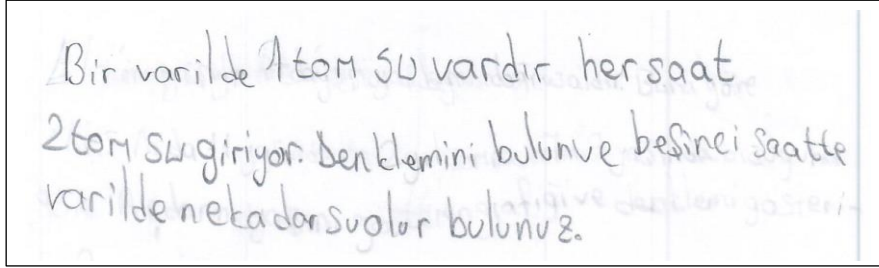 Bir varilde 1 ton su vardır her saat
2 ton su giriyor. Denklemini bulun ve beşinci saatte
varilde ne kadar su olur bulunuz.